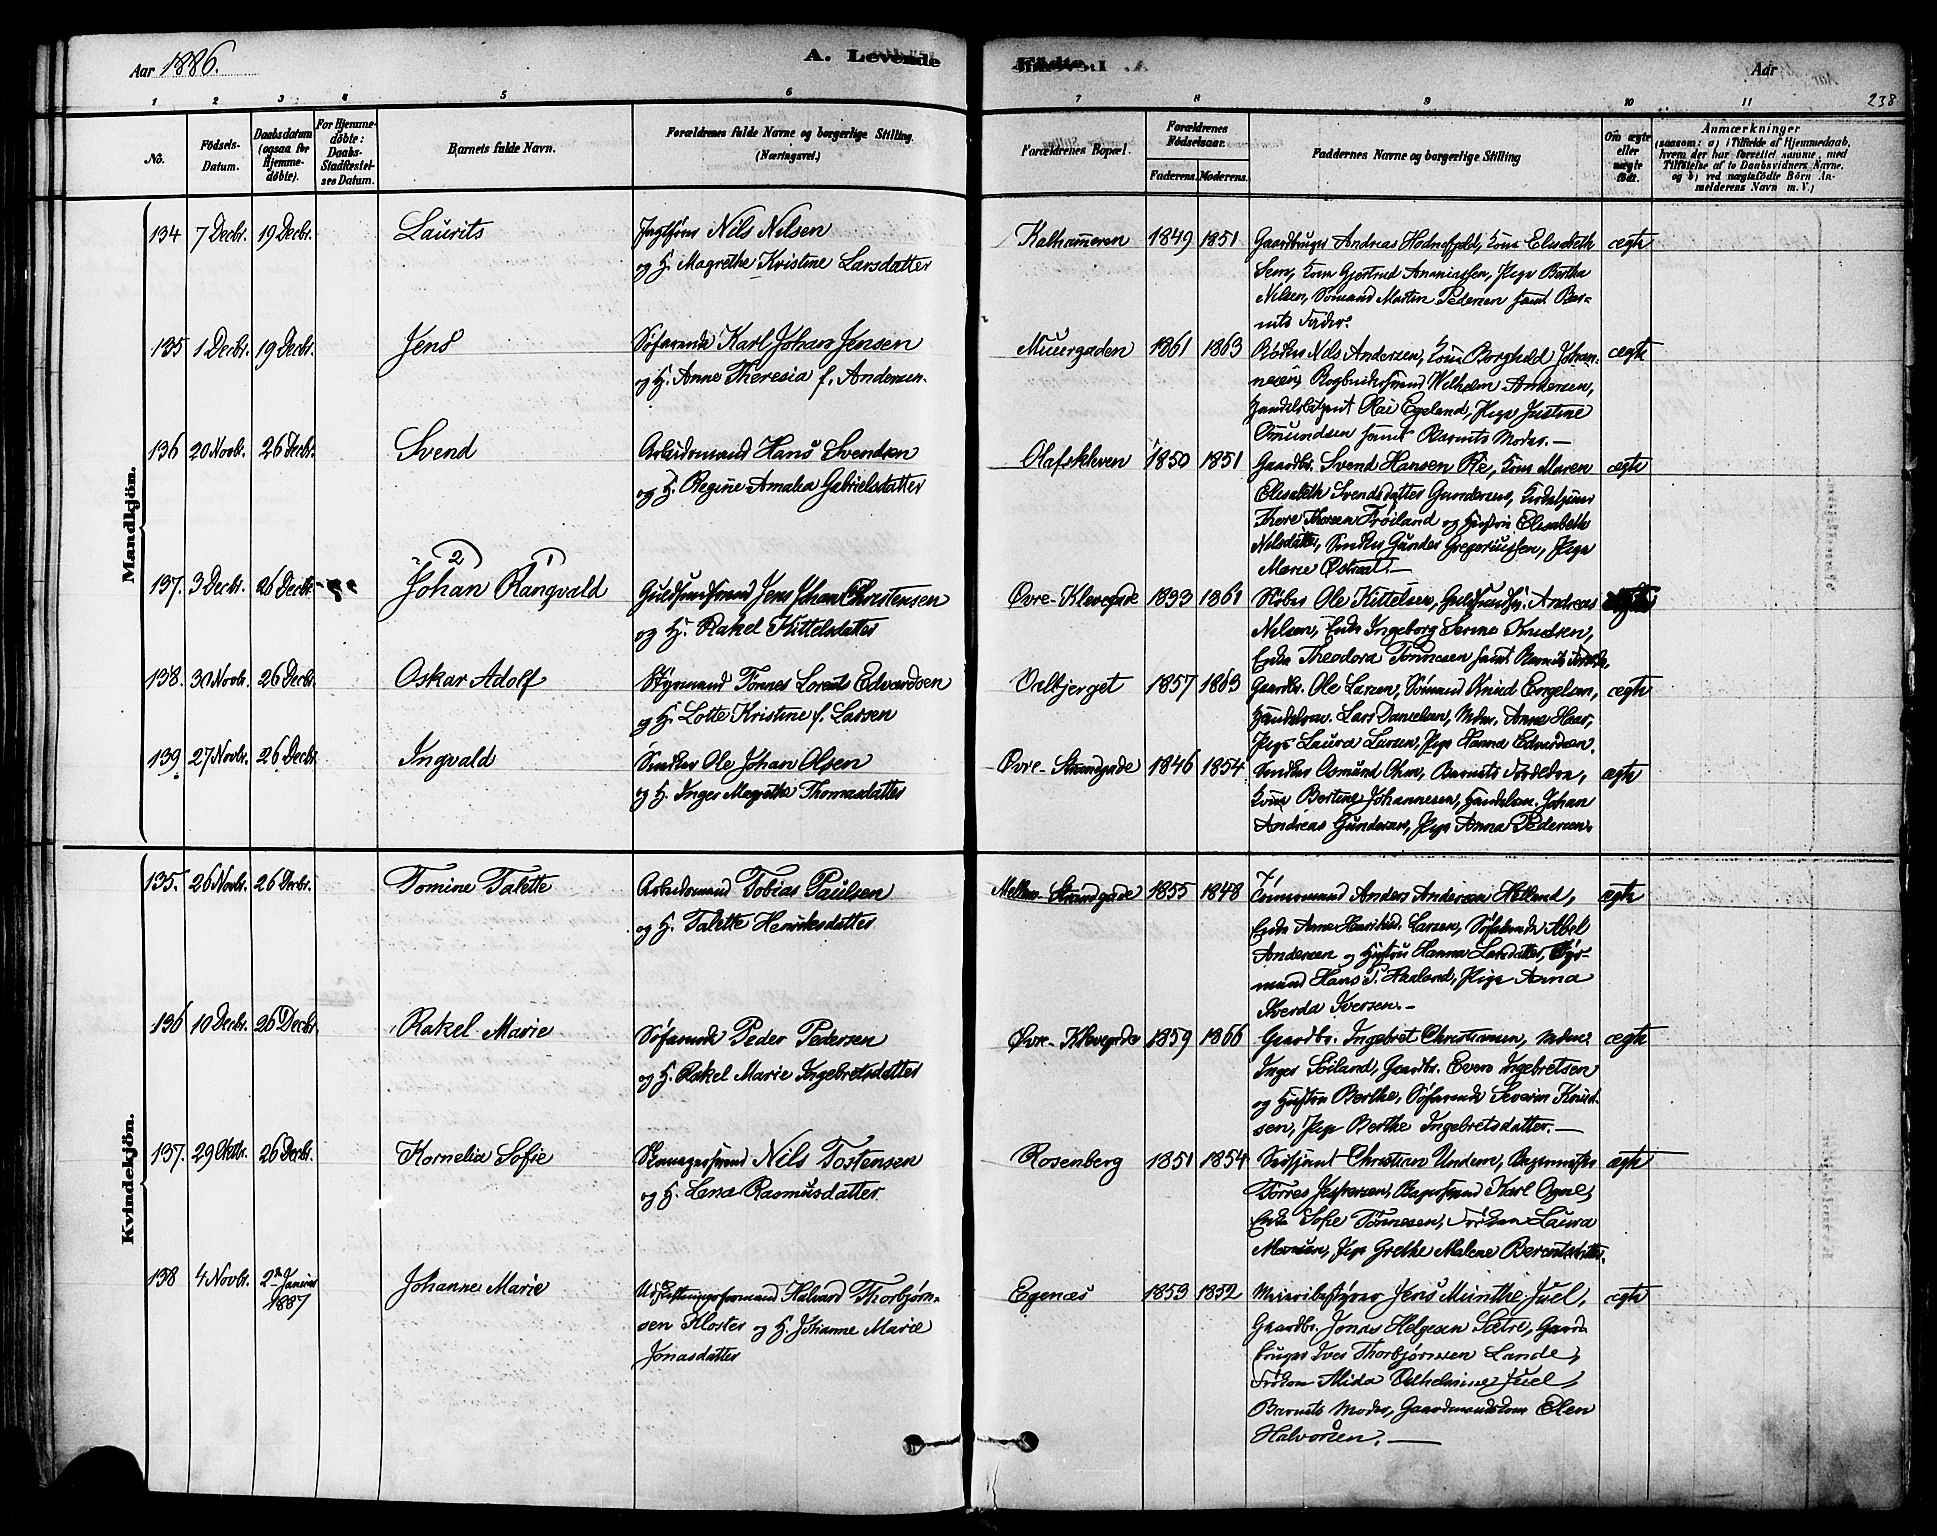 Aar 1886.
A. Levende
Fødte.
Aar
238
1 2 3 4 5 6 7 8 9 10 11
No.
Fødsels-
Datum.
Daabsdatum
(ogsaa for
Hjemme-
døbte).
For Hjemme-
døbte:
Daabs-
Stadfæstel-
ses Datum.
Barnets fulde Navn.
Forældrenes fulde Navne og borgerlige Stilling.
(Næringsvei.)
Forældrenes Bopæl.
Forældrenes
Fødselsaar.
Faderens. Moderens.
Faddernes Navne og borgerlige Stilling
Om ægte
eller
uægte
født.
Anmærkninger
(saasom: a) i Tilfælde af Hjemmedaab,
hvem der har forrettet samme, med
Tilføielse af to Daabsvidners Navne,
og b) ved uægtefødte Børn An-
melderens Navn m. V.)
Mandkjön.
134 7 Decbr. 19 Decbr. Laurits
Nils Nilsen
og H. Magrethe Kristine Larsdatter
Kalhammeren 1849 1851
Gaardbruger Andreas Hodnefjeld, Kone Elisabeth
Sem, Kone Gjertrud Ananiassen, Pige Bertha
Nilsen, Sømand Martin Pedersen samt Bar-
nets Fader.
ægte
135 1 Decbr. 19 Decbr. Jens
Søfarende Karl Johan Jensen
og H. Anne Theresia f. Andersen.
Muurgaden 1861 1863
Bødker Nils Andersen, Kone Borghild Johan-
nesen, Bogbindersvend Wilhelm Andersen,
Egeland, Pige Justine
Osmundsen samt Barnets Moder.—
ægte
136 20 Novbr. 26 Decbr. Svend
Arbeidsmand Hans Svendsen
og H. Regine Amalia Gabrielsdatter
Olafskleven 1850 1851
Gaardbr. Svend Hansen Rie, Kone Maren
Elisabeth Svendsdatter Gundersen,
Thore Thorsen Frøiland og Hustru Elisabeth
Nilsdatter, Snedker Gunder Gregoriussen, Pige
Marie Østraat.—
ægte
137. 3 Decbr. 26 Decbr.
2 1
Johan Rangvald
Guldsmedsvend Jens Johan Christensen
og H. Rakel Kittelsdatter
Øvre-Klevegade 1833 1861
Ole Kittelsen, Andreas
Nilsen, Enke Ingeborg Serine Knudsen,
Enke Theodora Tønnesen samt Barnets Forældre.
138. 30 Novbr. 26 Decbr. Oskar Adolf
Styrmand Tønnes Lorents Edvardsen
og H. Lotte Kristine f. Larsen
Valbjerget 1857 1863
Gaardbr. Ole Larsen, Sømand Knud Engelsen,
Handelsm. Lars Danielsen, Mdm. Anne Haar,
Pige Laura Larsen, Pige Hanna Edvardsen.
ægte
139. 27 Novbr. 26 Decbr. Ingvald
Snedker Ole Johan Olsen
og H. Inger Magrethe Thomasdatter
Øvre-Strandgade 1846 1854
Snedker Osmund Ohm, Barnets Forældre,
Kone Bertine Johannesen, Handelsm. Johan
Andreas Gundersen, Pige Anna Pedersen.
ægte
Kvindekjön.
135. 26 Novbr. 26 Decbr. Tomine Talette
Arbeidsmand Tobias Paulsen
og H. Talette Henriksdatter
Mellem-Strandgade 1855 1848
7,
Tømmermand Anders Andersen Helland,
Enke Anne Larsen, Søfarende Abel
Andersen og Hustru Hanna Larsdatter, Styr-
mand Hans P. Haaland, Pige Anna
Sverda Iversen.—
ægte
136 10 Decbr. 26 Decbr. Rakel Marie
Søfarende Peder Pedersen
og H. Rakel Marie Ingebretsdatter
Øvre-Klevegade 1859 1866
Gaardbr. Ingebret Christiansen, Mdme
Inger Soiland, Gaardbr. Even Ingebretsen
og Hustru Berthe, Søfarende Severin Knud-
sen, Pige Berthe Ingebretsdatter.—
ægte
137. 29 Oktbr. 26 Decbr. Kornelia Sofie
Skomagersvend Nils Tostensen
og H. Lena Rasmusdatter
Rosenberg 1851 1854
Sersjant Christian Undem, Bagermester
Torres Jespersen, Bagersvend Karl Ogne,
Enke Sofie Tønnesen, Frøken Laura
Monsen, Pige Grethe Malene Berentsdatter.
ægte
138 4 Novbr. 2den Januar
1887
Johanne Marie
Udskiftningsformand Halvard Thorbjørn-
sen Kloster og H. Johanne Marie
Jonasdatter
Egenæs 1853 1852
Meieribestyrer Jens Munthe Juel,
Gaardbr. Jonas Helgesen Sætre, Gaard-
bruger Iver Thorbjørnsen Lande,
Frøken Mida Vilhelmine Juel,
Barnets Moder, Gaardmandskone Elen
Halvorsen.—
ægte